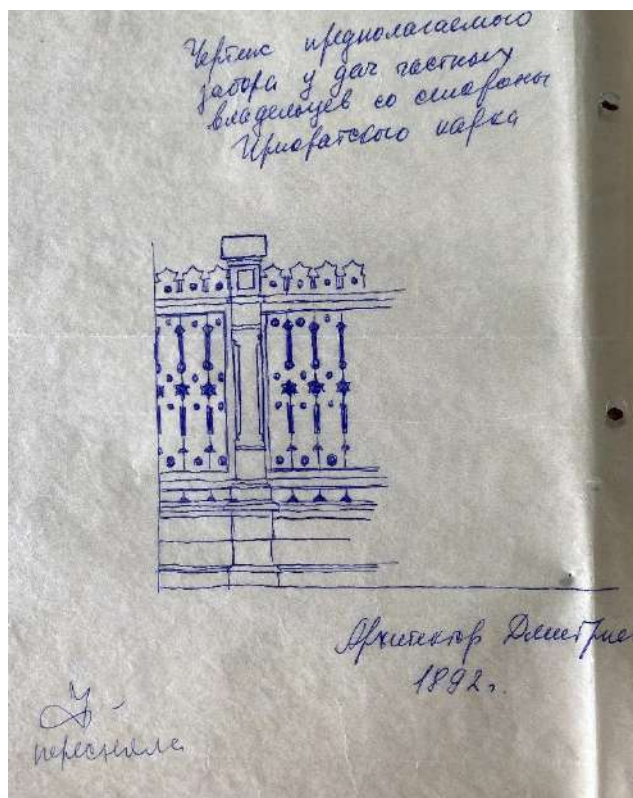 Чертеж предполагаемого
забора у дач частных
владельцев со стороны
Приоратского парка
Архитектор Дмитрие
1892г.
пересняла